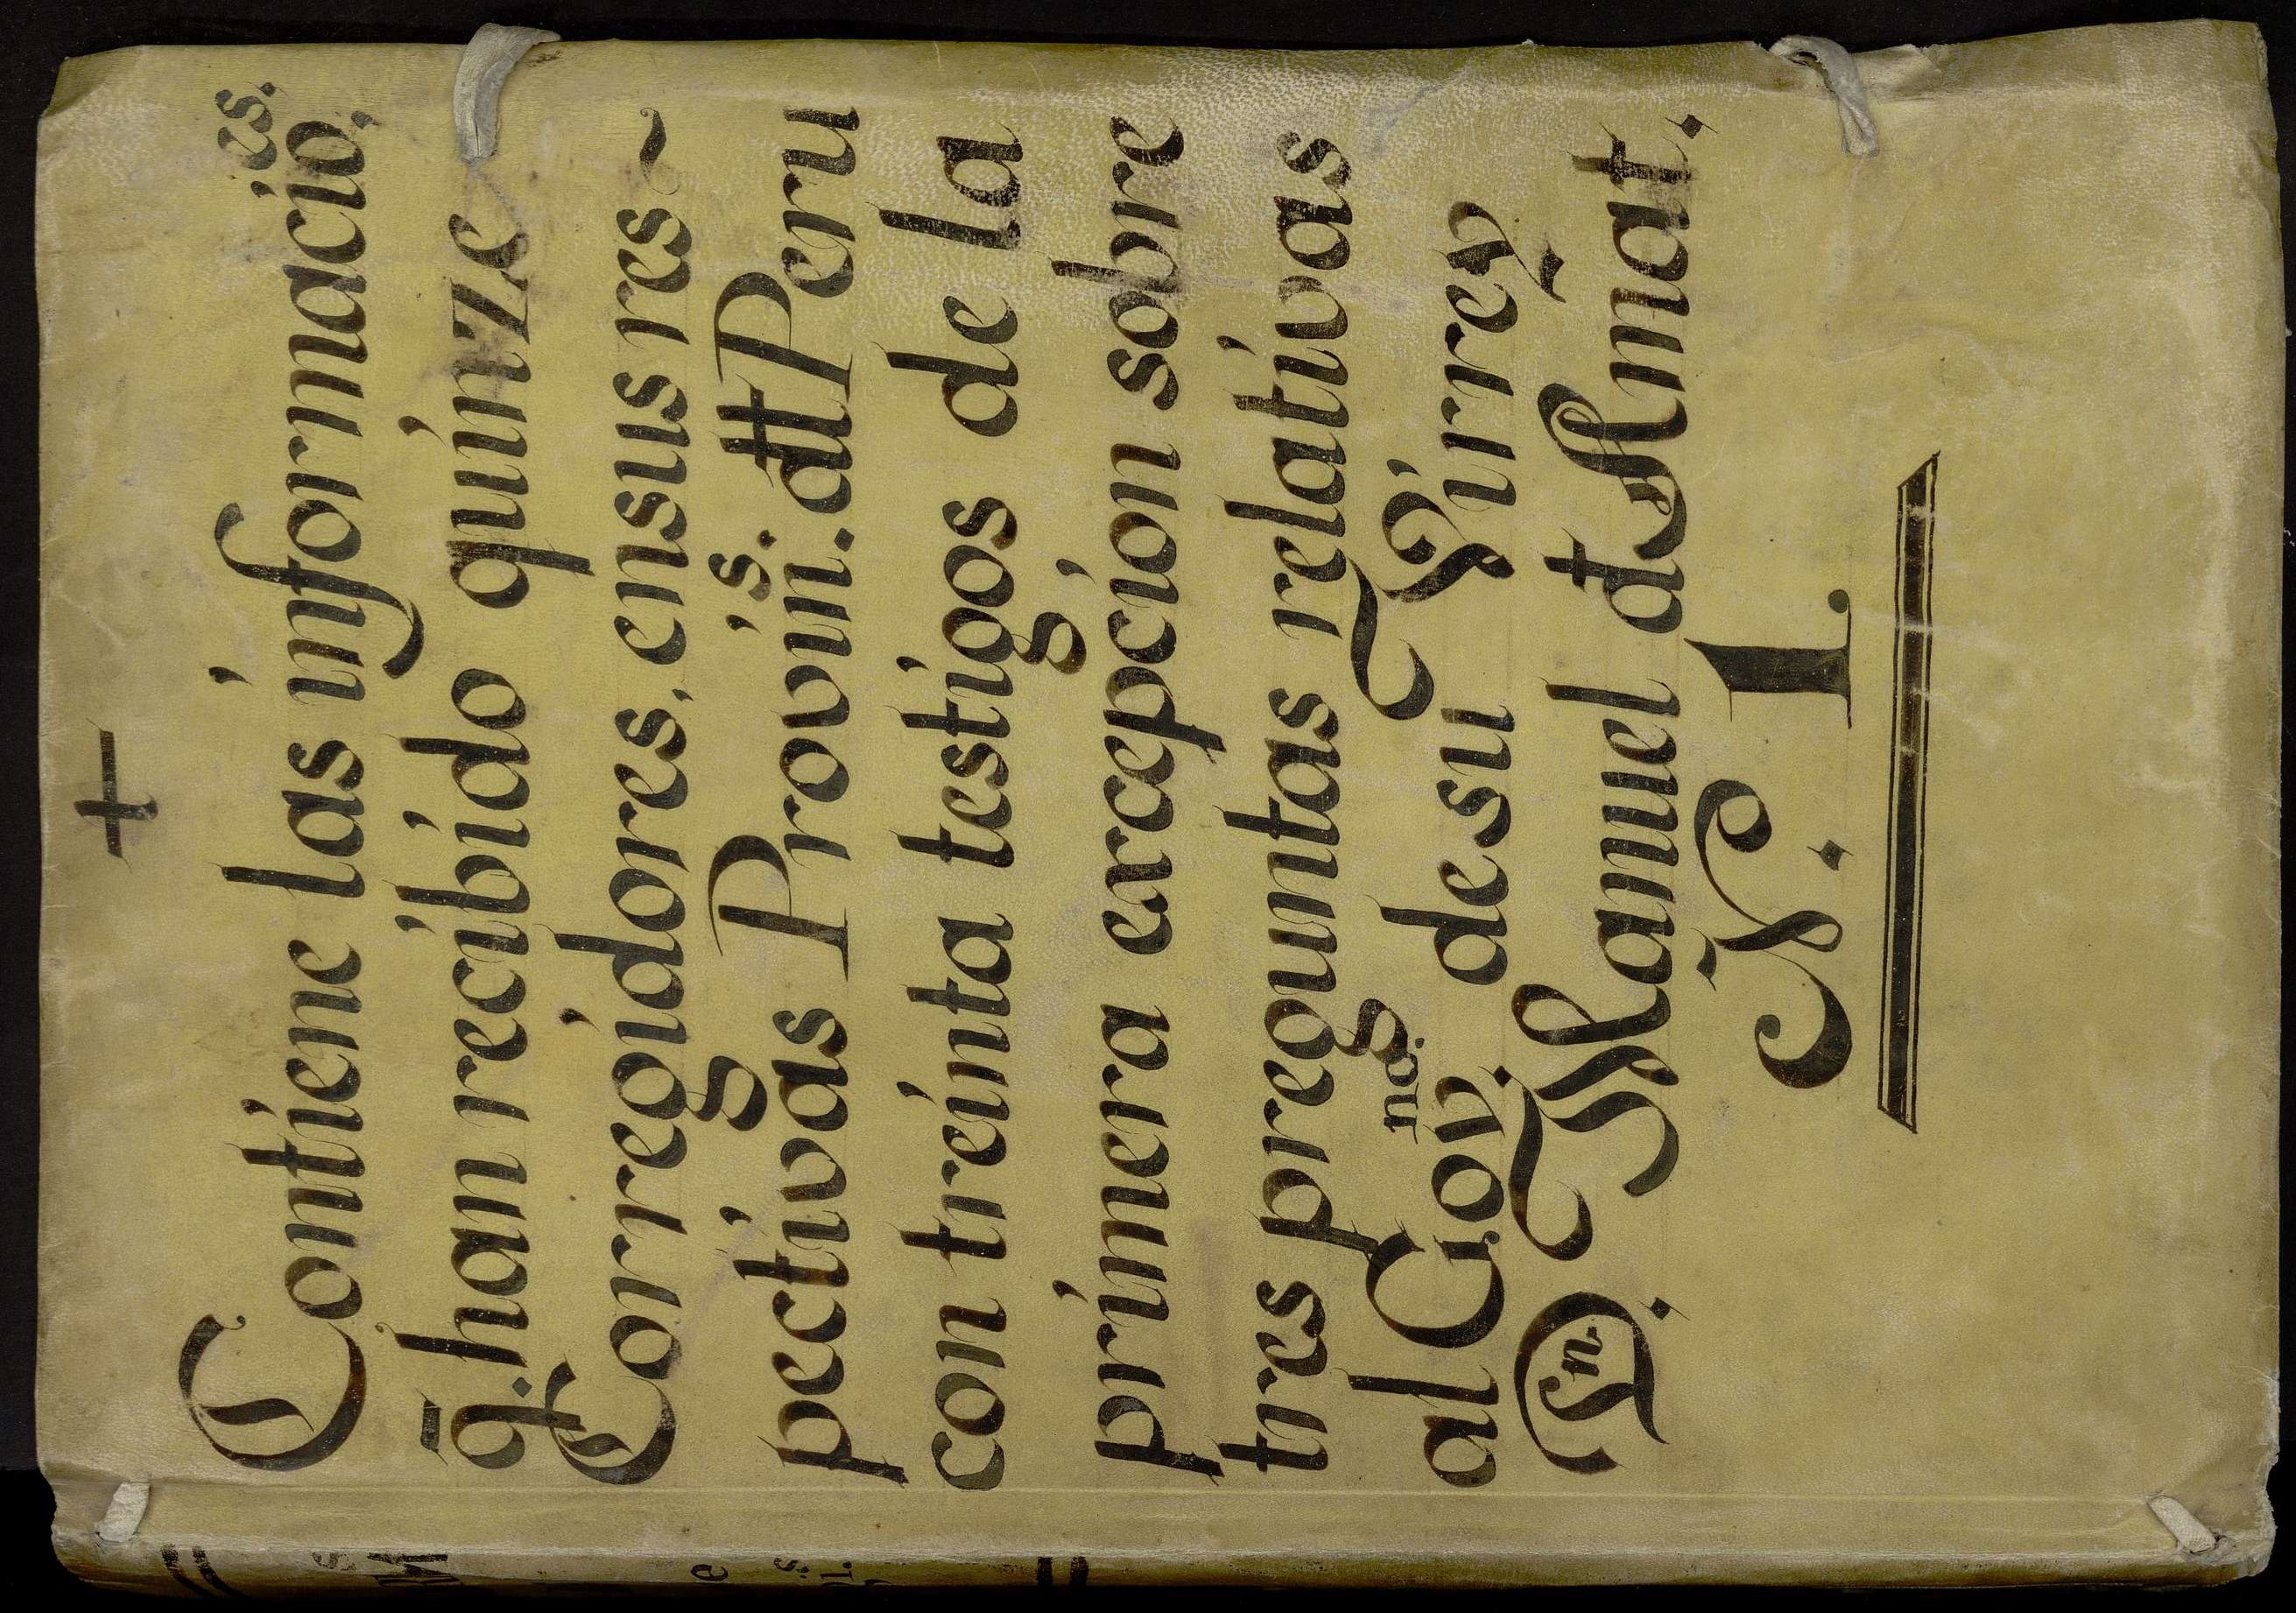 +
Contiene las informacio.es.
q̃. han recibido quinze
Corregidores, ensus res~
pectivas Provin.s. dɫ Peru
con treinta testigos de la
primera excepcion sobre
tres preguntas relativas
al Gov.no. de su Virrey
Dn. Manuel đ Amat.
N. 1.